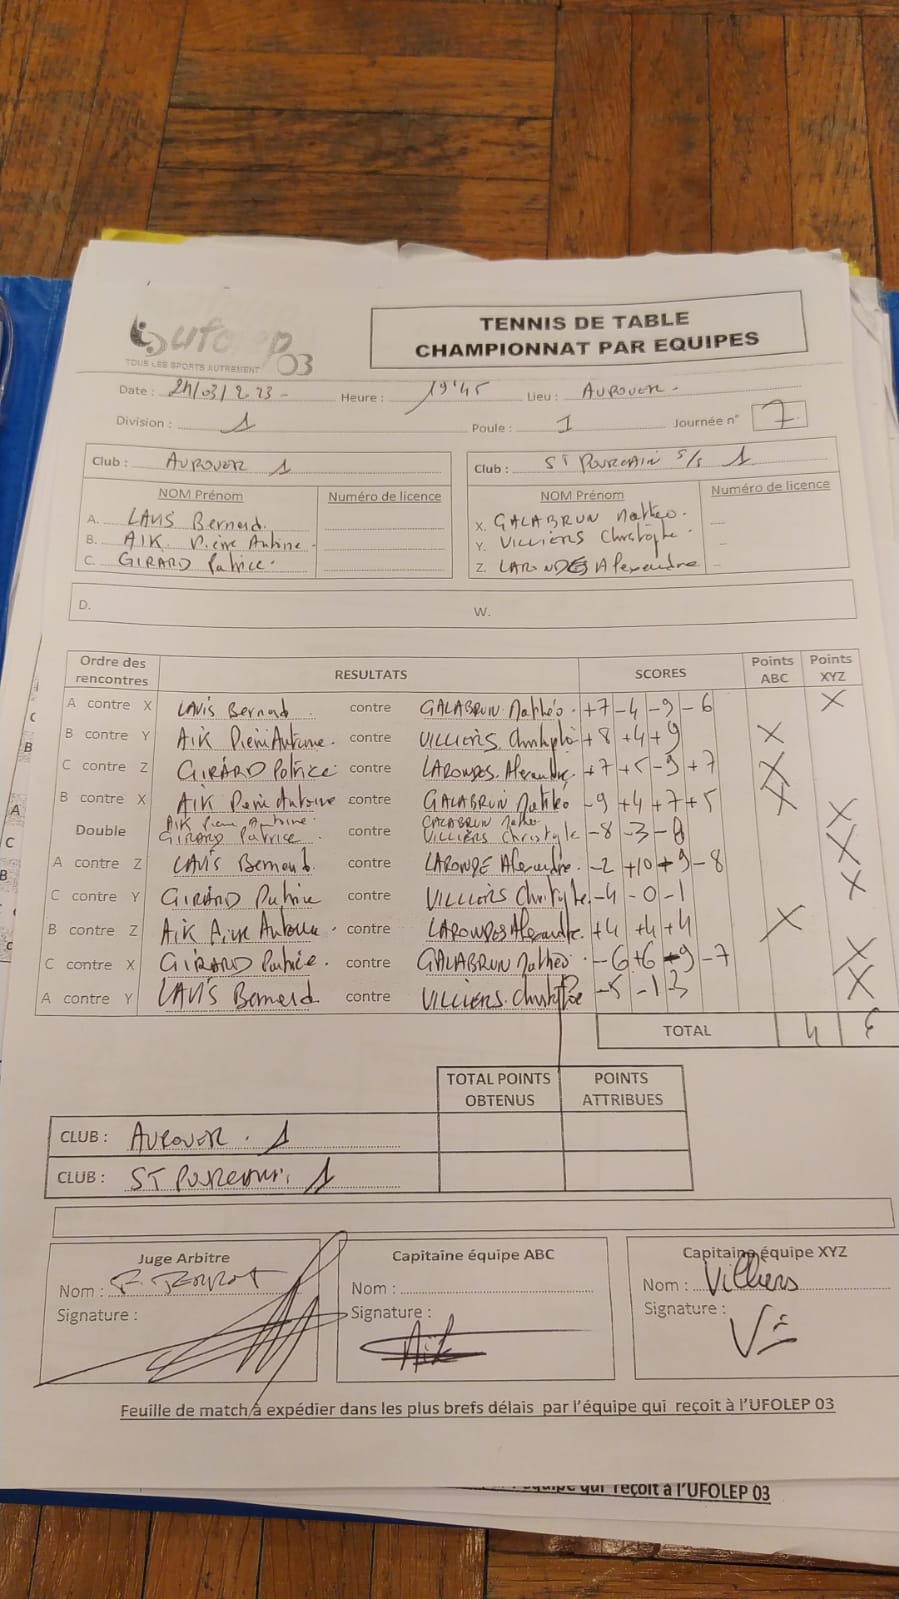 ufolep 03
TOUS LES SPORTS AUTREMENT
TENNIS DE TABLE
CHAMPIONNAT PAR EQUIPES
Date : 24/03/2023 Heure : 19h45 Lieu : AUROUER
Division : 1 Poule : 1 Journée n° 7
Club : AUROUER 1 Club : ST POURCAIN S/S 1
NOM Prénom Numéro de licence NOM Prénom Numéro de licence
A. LAVIS Bernard X. GALABRUN Mathéo
B. AIK Pierre Antoine Y. VILLIERS Christophe
C. GIRARD Patrice Z. LARONDE Alexandre
D. W.
Ordre des rencontres RESULTATS SCORES Points ABC Points XYZ
A contre X LAVIS Bernard contre GALABRUN Mathéo +7 -4 -9 -6 X
B contre Y AIK Pierre Antoine contre VILLIERS Christophe +8 +4 +9 X
C contre Z GIRARD Patrice contre Alexandre +7 +5 -9 +7 X
B contre X AIK Pierre Antoine contre GALABRUN Mathéo -9 +4 +7 +5 X
Double AIK Pierre Antoine GIRARD Patrice contre GALABRUN Mathéo VILLIERS Christophe -8 -3 -8 X
A contre Z LAVIS Bernard contre LARONDE Alexandre -2 +10 +9 -8 X
C contre Y GIRARD Patrice contre VILLIERS Christophe -4 -0 -1 X
B contre Z AIK Pierre Antoine contre Alexandre +4 +4 +4 X
C contre X GIRARD Patrice contre GALABRUN Mathéo -6 +6 -9 -7 X
A contre Y LAVIS Bernard contre VILLIERS Christophe -5 -13 X
TOTAL 4
TOTAL POINTS OBTENUS POINTS ATTRIBUES
CLUB : AUROUER 1
CLUB : ST POURCAIN 1
Juge Arbitre Capitaine équipe ABC Capitaine équipe XYZ
Nom : Nom : Nom : Villiers
Signature : Signature : Aik Signature :
Feuille de match à expédier dans les plus brefs délais par l'équipe qui reçoit à l'UFOLEP 03
équipe qui reçoit à l'UFOLEP 03